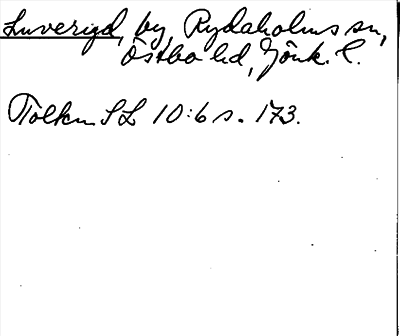 Luveryd, by, Rydaholms sn,
Östbo hd, Jönk. l.
Tolkn SL 10:6 s. 173.